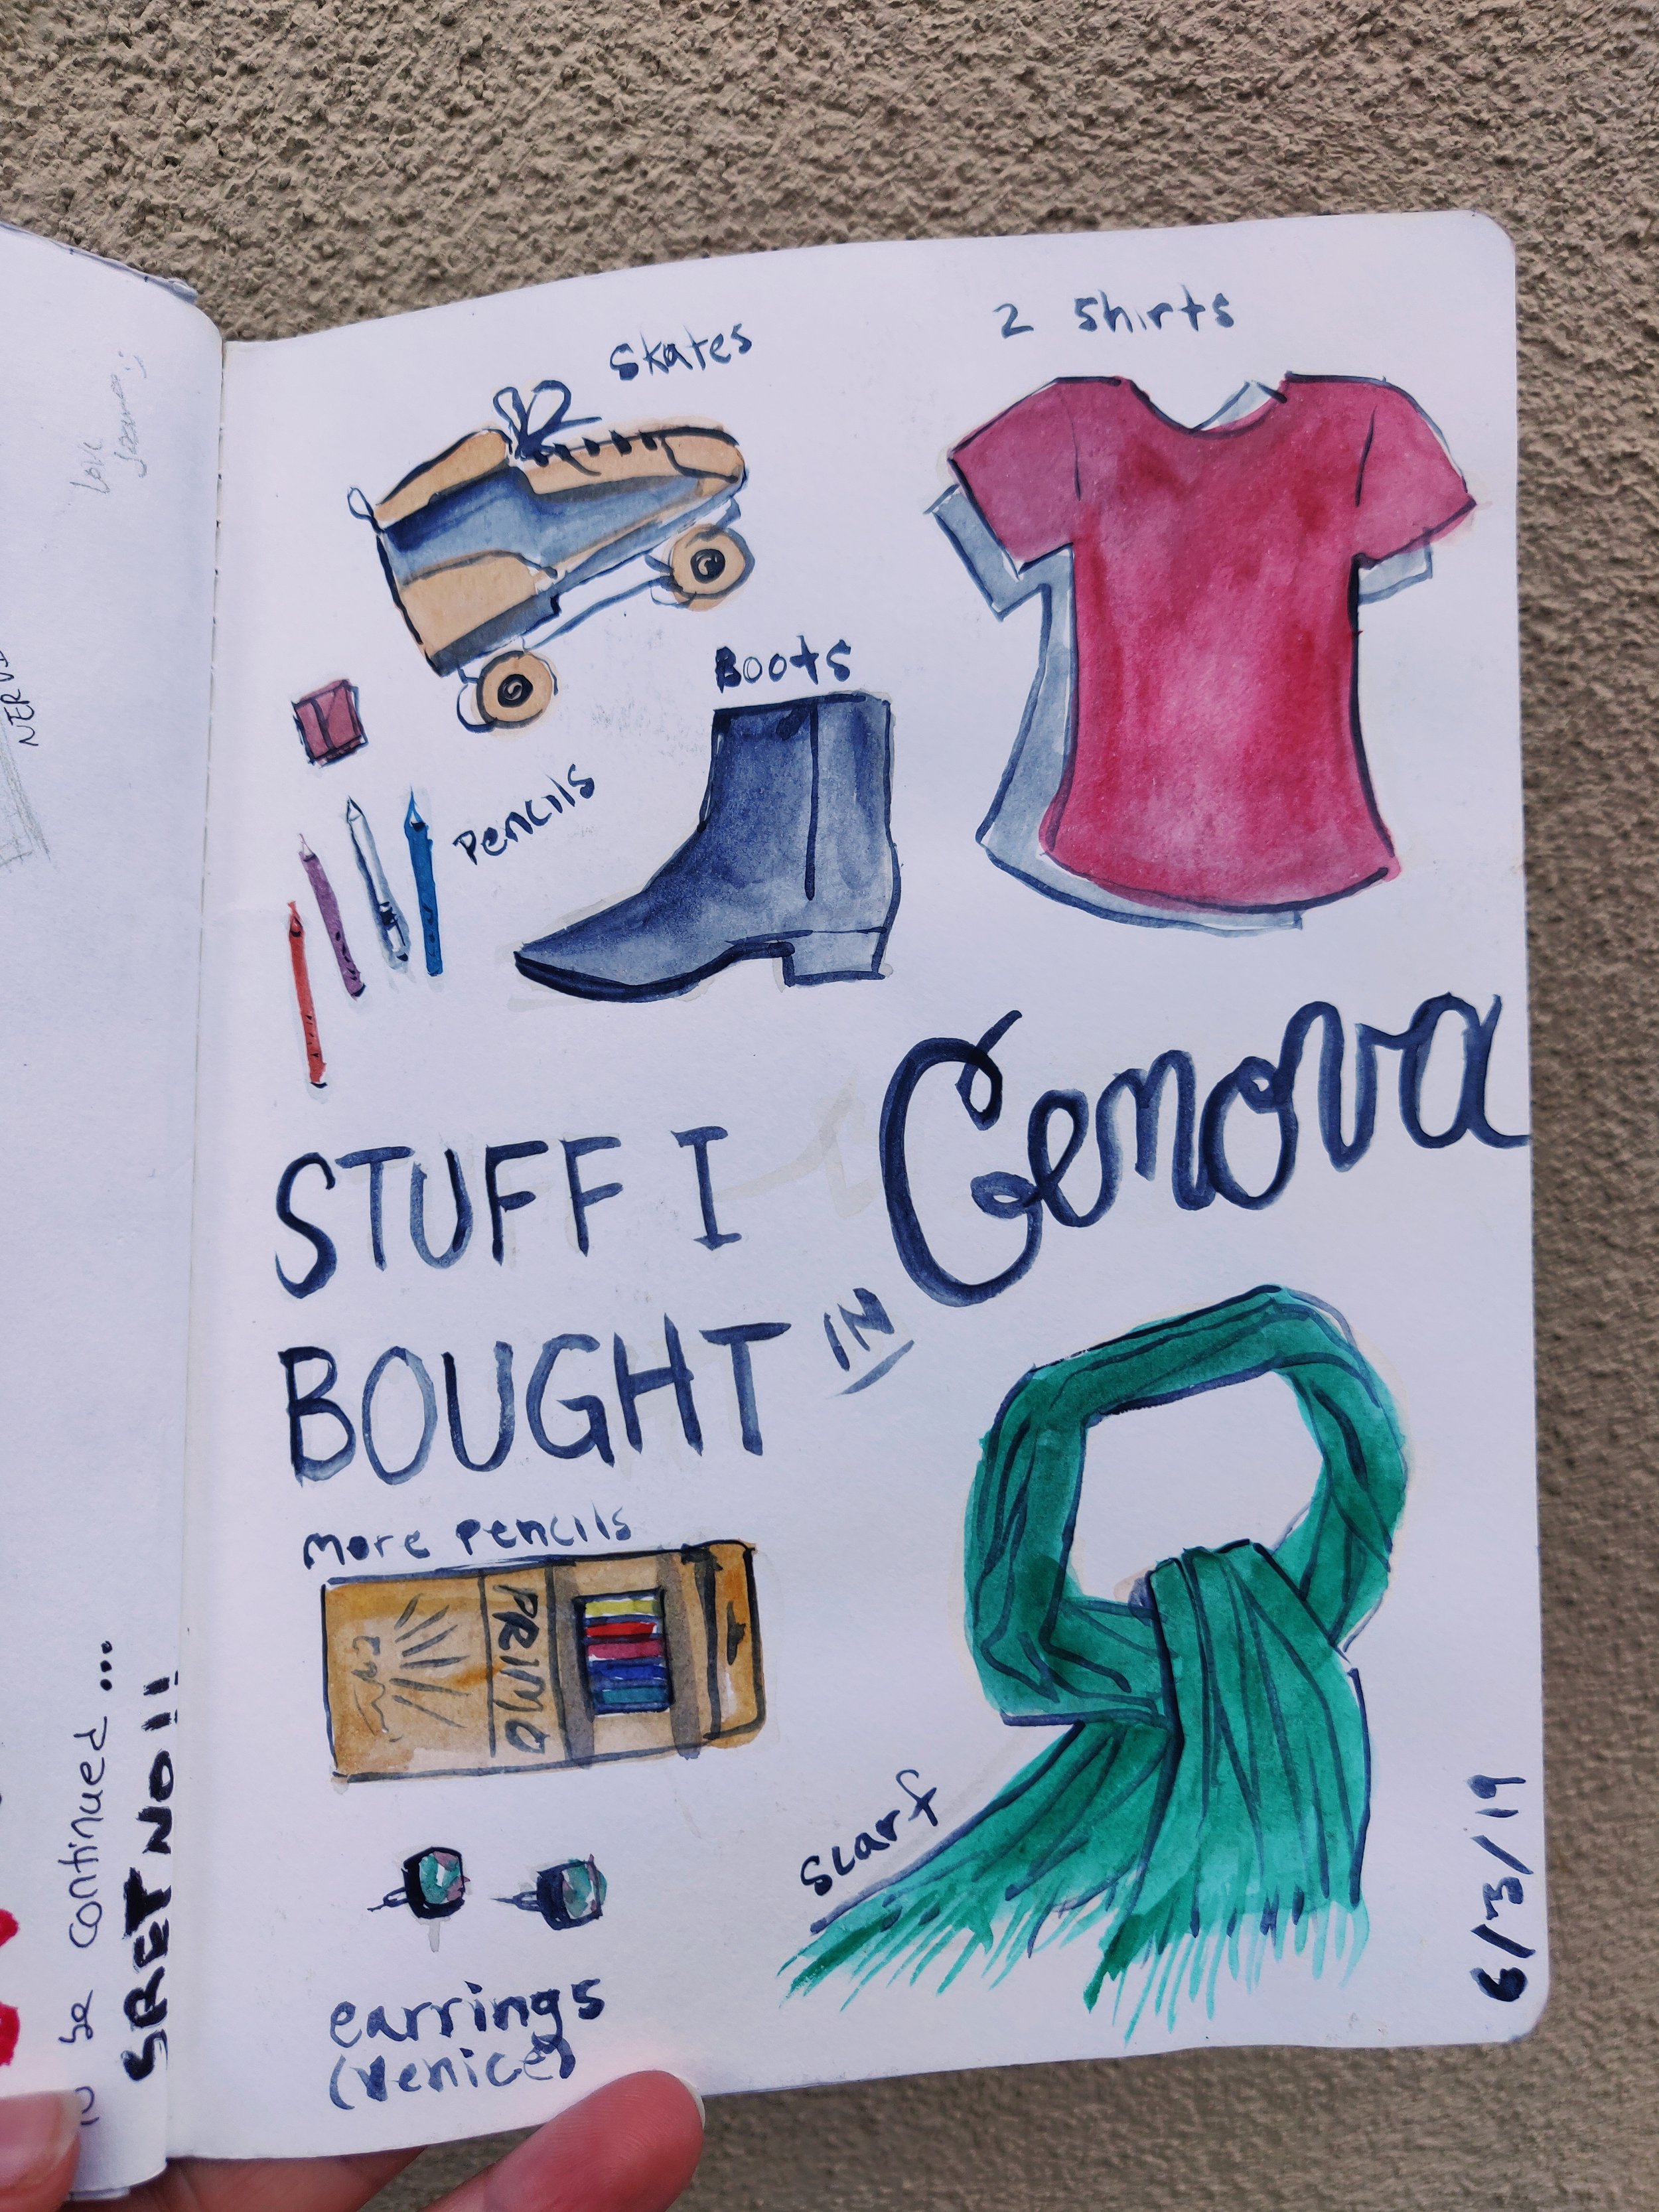 Skates
2 Shirts
Boots
Pencils
STUFF I
BOUGHT IN
Genova
more pencils
PRIMO
scarf
earrings
(Venice)
6/3/19
be continued...
SRET NO!!
love